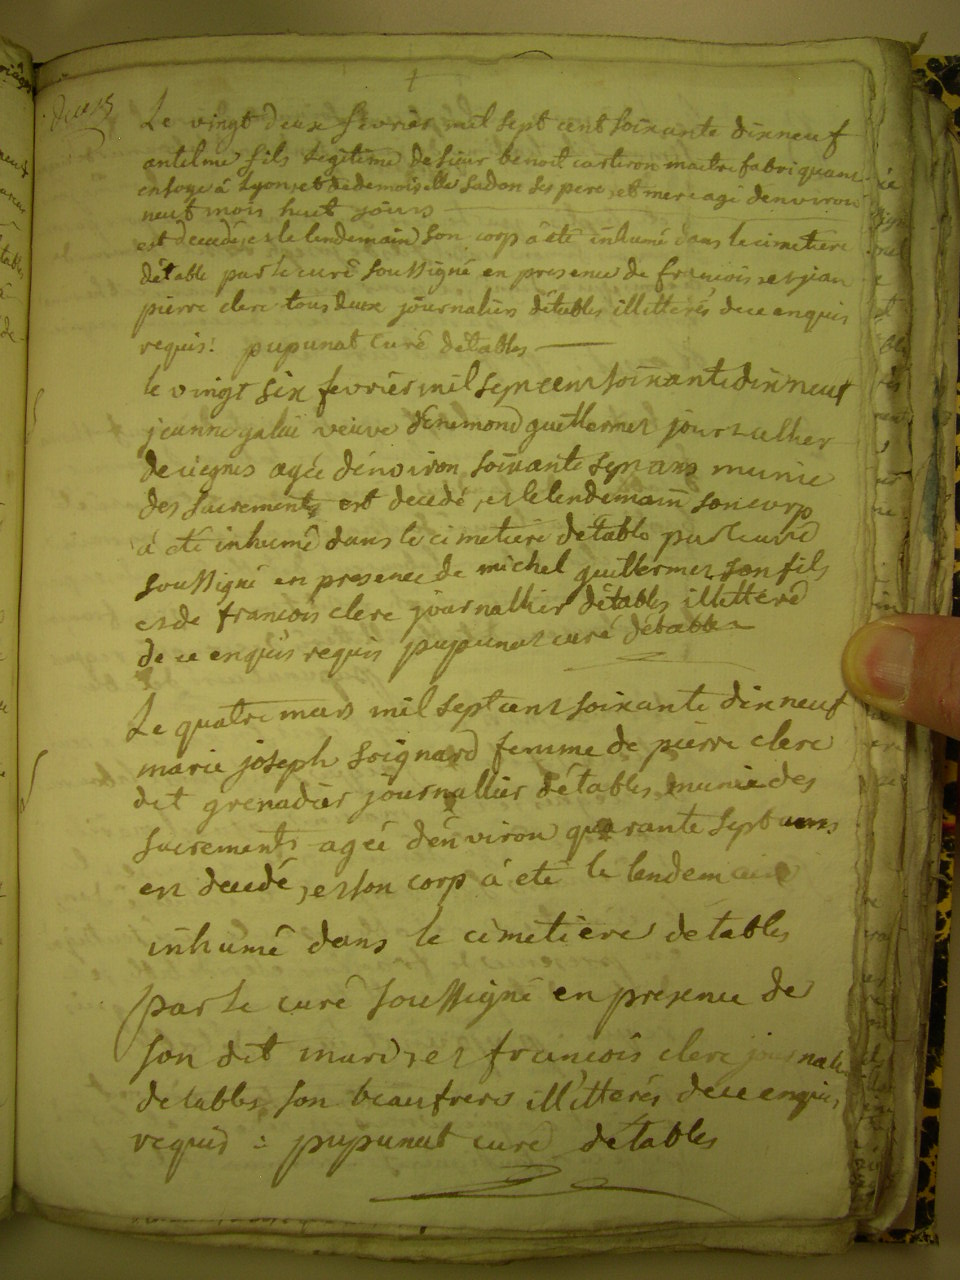 deces
Le vingt deux fevrier mil sept cent soixante dix neuf
antelme fils legitime de sieur benoit carteron maitre fabriquant
en soye á Lyon, et de demoiselle ses pere, et mere agé d'environ
neuf mois huit jours
est decedé, et le lendemain son corp á eté inhumé dans le cimetiere
d'étable par le curé soussigné en presence de francois, et jean
pierre clerc tous deux journaliers d'étables illitterés de ce enquis
requis: pupunat curé d'étables
le vingt six fevrier mil sept cent soixante dix neuf
jeanne veuve d'Enemond guillermet journallier
de agée d'environ soixante sept ans munie
des sacrements est decedé, et le lendemain son corp
á eté inhumé dans le cimetiere d'étable par le curé
soussigné en presence de michel guillermet son fils
et de francois clerc journallier d'étables illitteré
de ce enquis requis pupunat curé d'étables
Le quatre mars mil sept cent soixante dix neuf
marie joseph soignard femme de pierre clerc
dit grenadier journallier d'étables, munie des
sacrements agée d'environ quarante sept ans
est decedé, et son corp á eté le lendemain
inhumé dans le cimetière detables
par le curé soussigné en presence de
son dit mari, et francois clerc journali
detables son beaufrere illitterés de ce enquis,
requis : pupunat curé détables